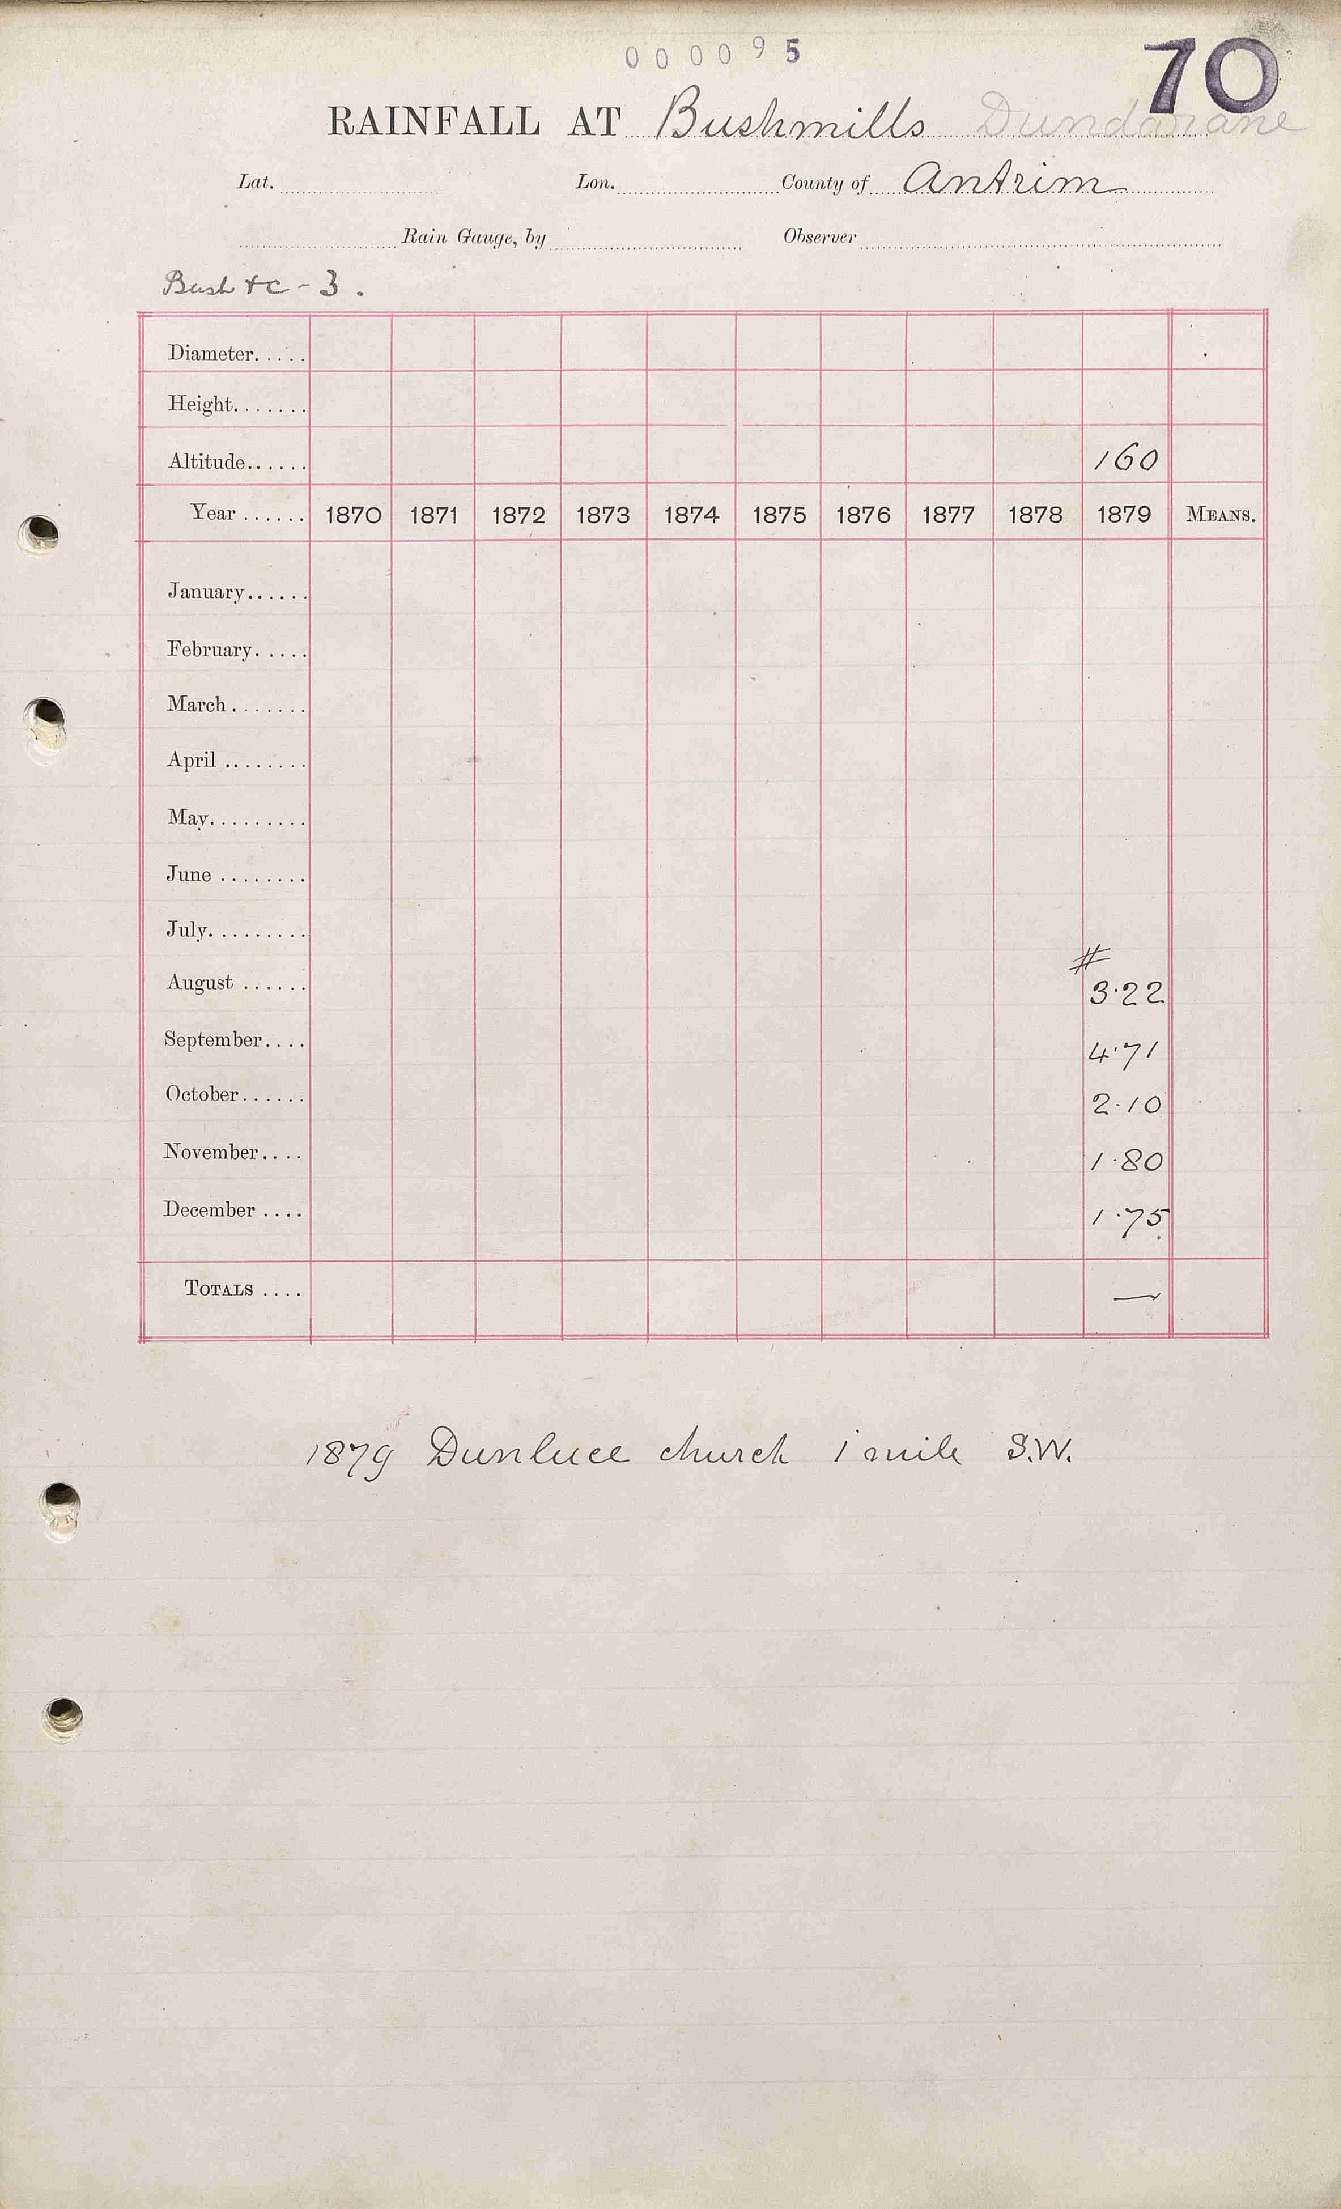 0 0 0 0 9 5
70
RAINFALL AT Bushmills Dundarane
Lat. Lon. County of Antrim
Rain Gauge, by Observer
Bush &c - 3.
Diameter.....
Height.......
Altitude...... 160
Year ...... 1870 1871 1872 1873 1874 1875 1876 1877 1878 1879 MEANS.
January......
February.....
March.......
April ........
May.........
June ........
July.........
#
August ...... 3.22
September.... 4.71
October...... 2.10
November.... 1.80
December .... 1.75
TOTALS .... —
1879 Dunluce church 1 mile S.W.